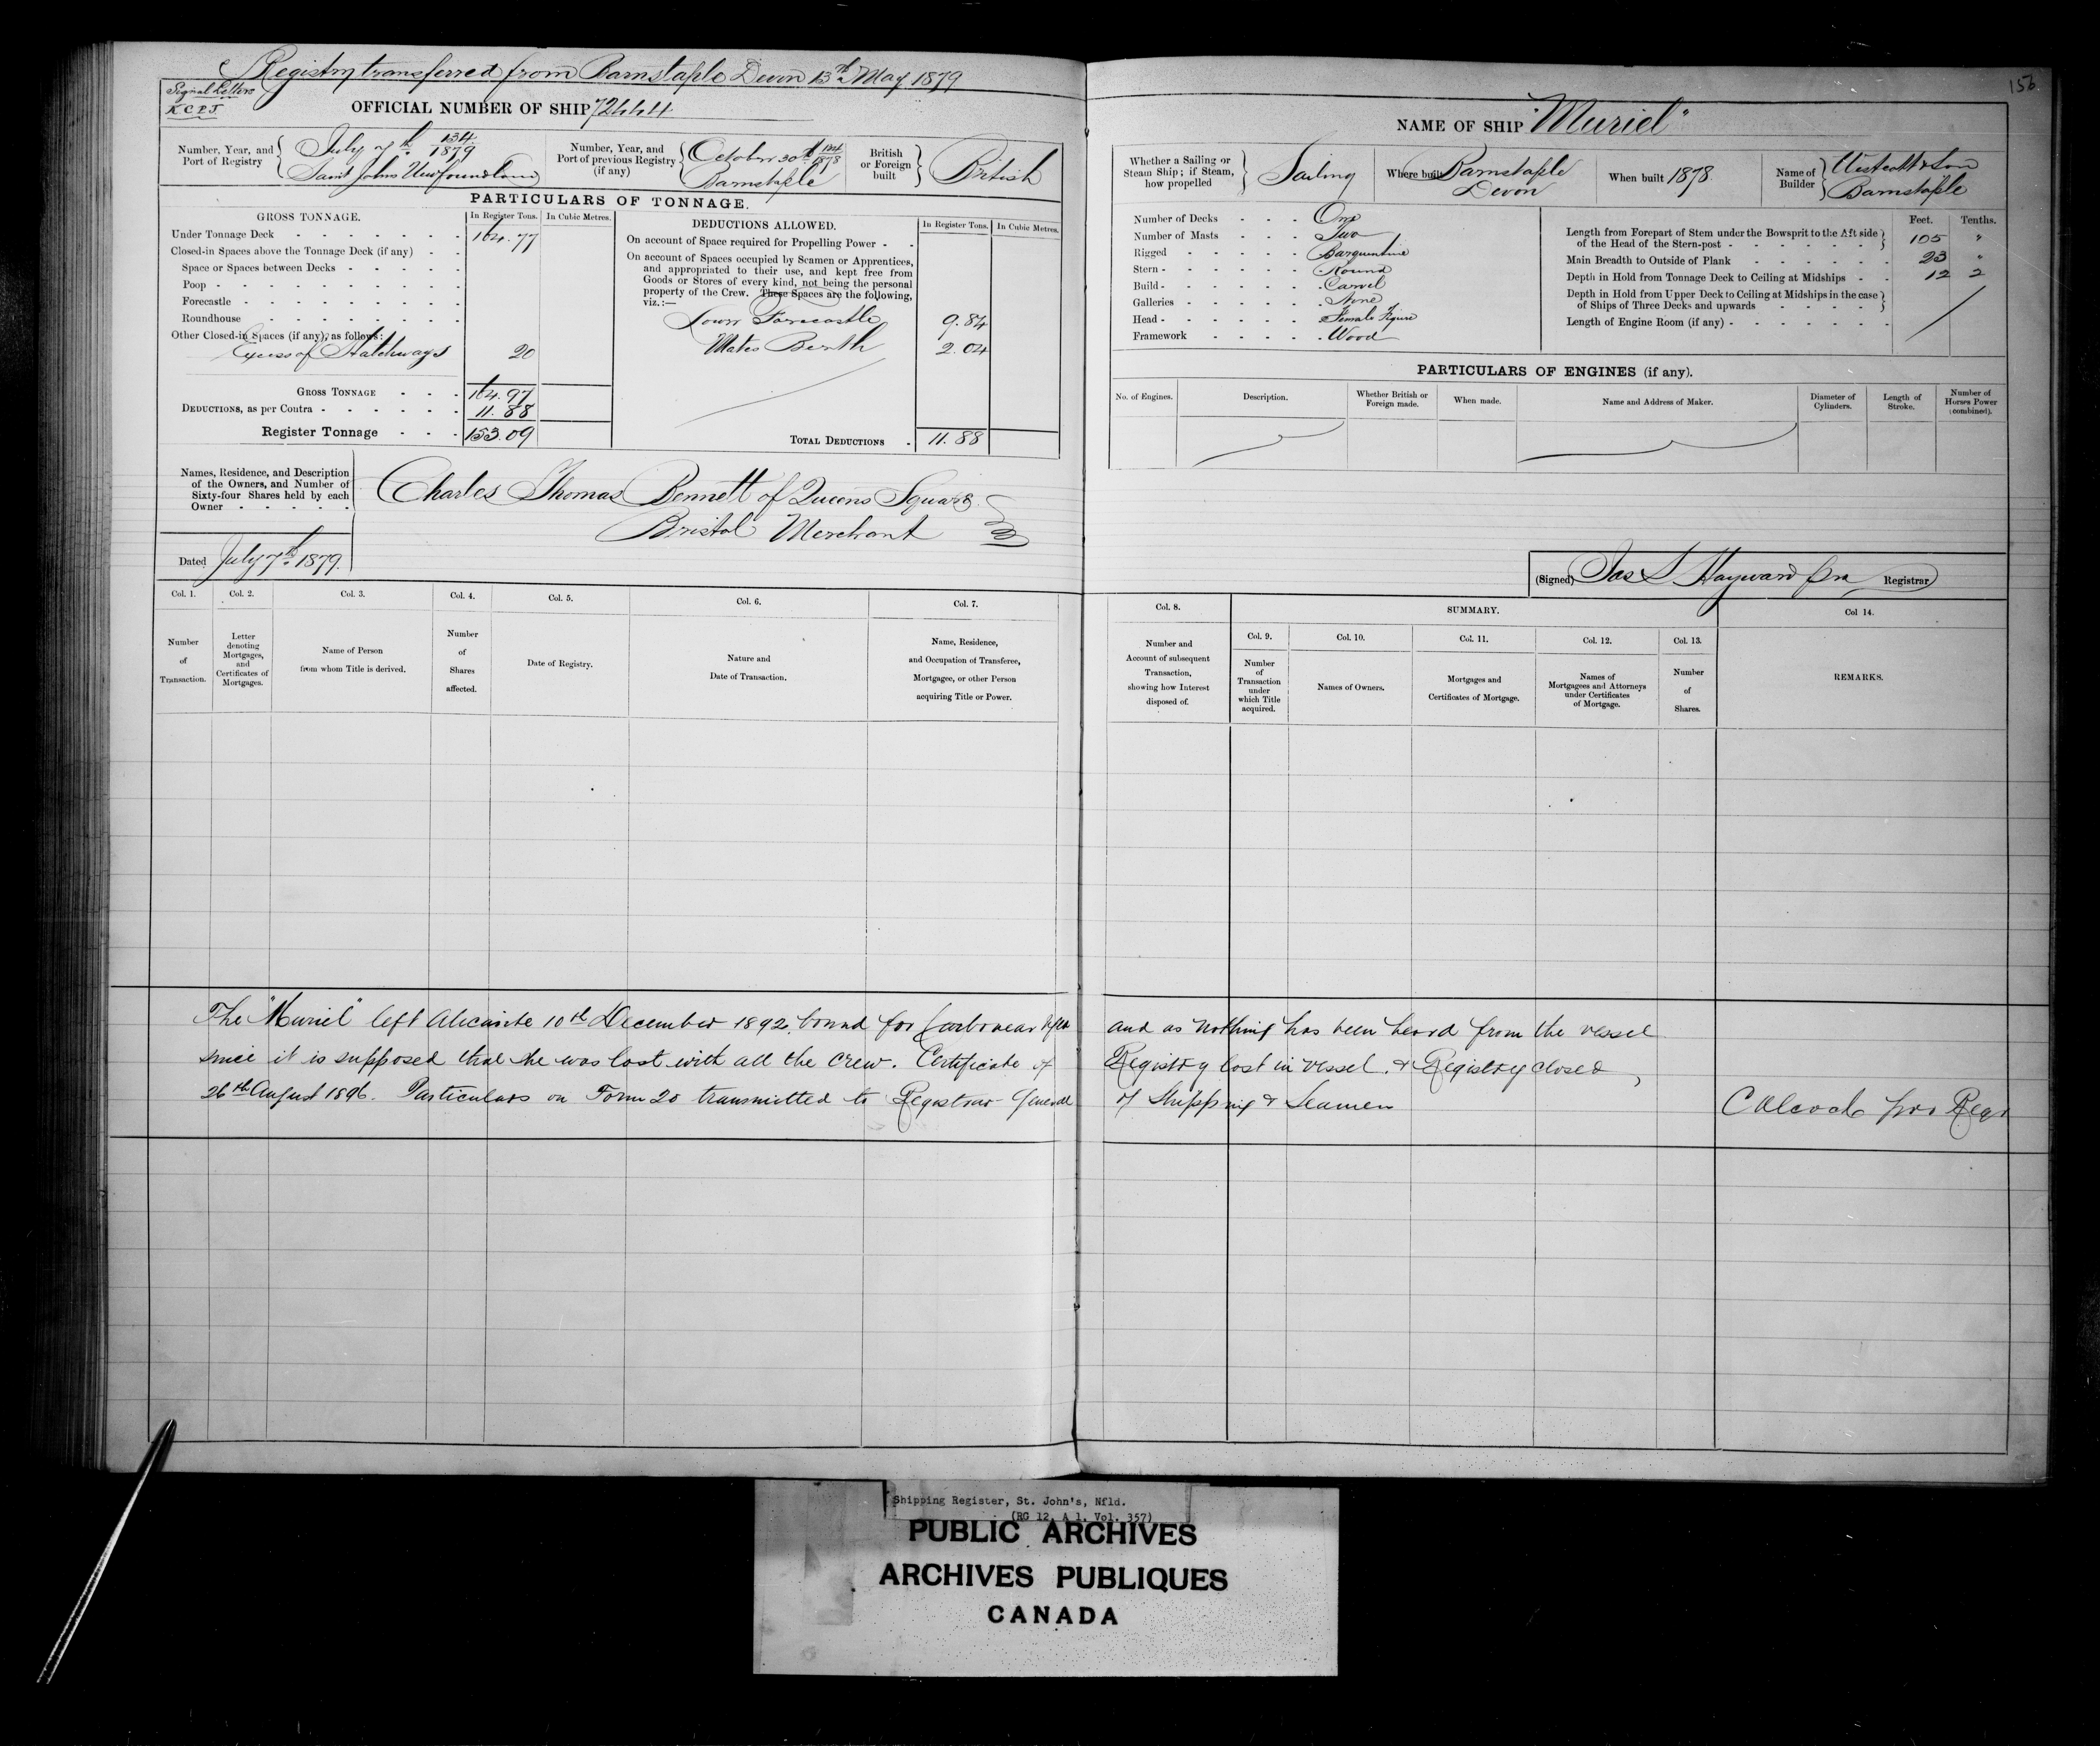 Registry transferred from Barnstaple Devon 13th May 1879
Signal Letters
K.C.P.J.
OFFICIAL NUMBER OF SHIP 72444
Number, Year, and Port of Registry
July 7th 134/1879
Saint Johns Newfoundland
Number, Year, and Port of previous Registry (if any)
October 30th 1878
Barnstaple
British or Foreign built
British
PARTICULARS OF TONNAGE.
GROSS TONNAGE. In Register Tons. In Cubic Metres.
Under Tonnage Deck 164.77
Closed-in Spaces above the Tonnage Deck (if any)
Space or Spaces between Decks
Poop
Forecastle
Roundhouse
Other Closed-in Spaces (if any), as follows:
Excess of Hatchways 20
GROSS TONNAGE 164.97
DEDUCTIONS, as per Contra 11.88
Register Tonnage 153.09
DEDUCTIONS ALLOWED. In Register Tons. In Cubic Metres.
On account of Space required for Propelling Power
On account of Spaces occupied by Seamen or Apprentices,
and appropriated to their use, and kept free from
Goods or Stores of every kind, not being the personal
property of the Crew. These Spaces are the following,
viz.:—
Lower Forecastle 9.84
Mates Berth 2.04
TOTAL DEDUCTIONS 11.88
Names, Residence, and Description
of the Owners, and Number of
Sixty-four Shares held by each
Owner
Charles Thomas Bennett of Queens Square
Bristol Merchant
Dated July 7th 1879.
Col. 1. Col. 2. Col. 3. Col. 4. Col. 5. Col. 6. Col. 7.
Number of Transaction.
Letter denoting Mortgages, and Certificates of Mortgages.
Name of Person from whom Title is derived.
Number of Shares affected.
Date of Registry.
Nature and Date of Transaction.
Name, Residence, and Occupation of Transferee, Mortgagee, or other Person acquiring Title or Power.
156
NAME OF SHIP "Muriel"
Whether a Sailing or Steam Ship; if Steam, how propelled
Sailing
Where built Barnstaple Devon
When built 1878.
Name of Builder
Westcott & Son
Barnstaple
Number of Decks One
Number of Masts Two
Rigged Barquentine
Stern Round
Build Carvel
Galleries None
Head Female Figure
Framework Wood
Feet. Tenths.
Length from Forepart of Stem under the Bowsprit to the Aft side
of the Head of the Stern-post 105 "
Main Breadth to Outside of Plank 23 "
Depth in Hold from Tonnage Deck to Ceiling at Midships 12 2
Depth in Hold from Upper Deck to Ceiling at Midships in the case
of Ships of Three Decks and upwards
Length of Engine Room (if any)
PARTICULARS OF ENGINES (if any).
No. of Engines.
Description.
Whether British or Foreign made.
When made.
Name and Address of Maker.
Diameter of Cylinders.
Length of Stroke.
Number of Horses Power (combined).
(Signed) Jas S Hayward pro Registrar
Col. 8. SUMMARY. Col 14.
Col. 9. Col. 10. Col. 11. Col. 12. Col. 13.
Number and Account of subsequent Transaction, showing how Interest disposed of.
Number of Transaction under which Title acquired.
Names of Owners.
Mortgages and Certificates of Mortgage.
Names of Mortgagees and Attorneys under Certificates of Mortgage.
Number of Shares.
REMARKS.
The "Muriel" left Alicante 10th December 1892, bound for Carbonear Nfld and as nothing has been heard from the vessel
since it is supposed that she was lost with all the crew. Certificate of Registry lost in vessel. & Registry closed,
26th August 1896. Particulars on Form 20 transmitted to Registrar General of Shipping & Seamen
pro Regr
Shipping Register, St. John's, Nfld.
(RG 12, A 1, Vol. 357)
PUBLIC ARCHIVES
ARCHIVES PUBLIQUES
CANADA